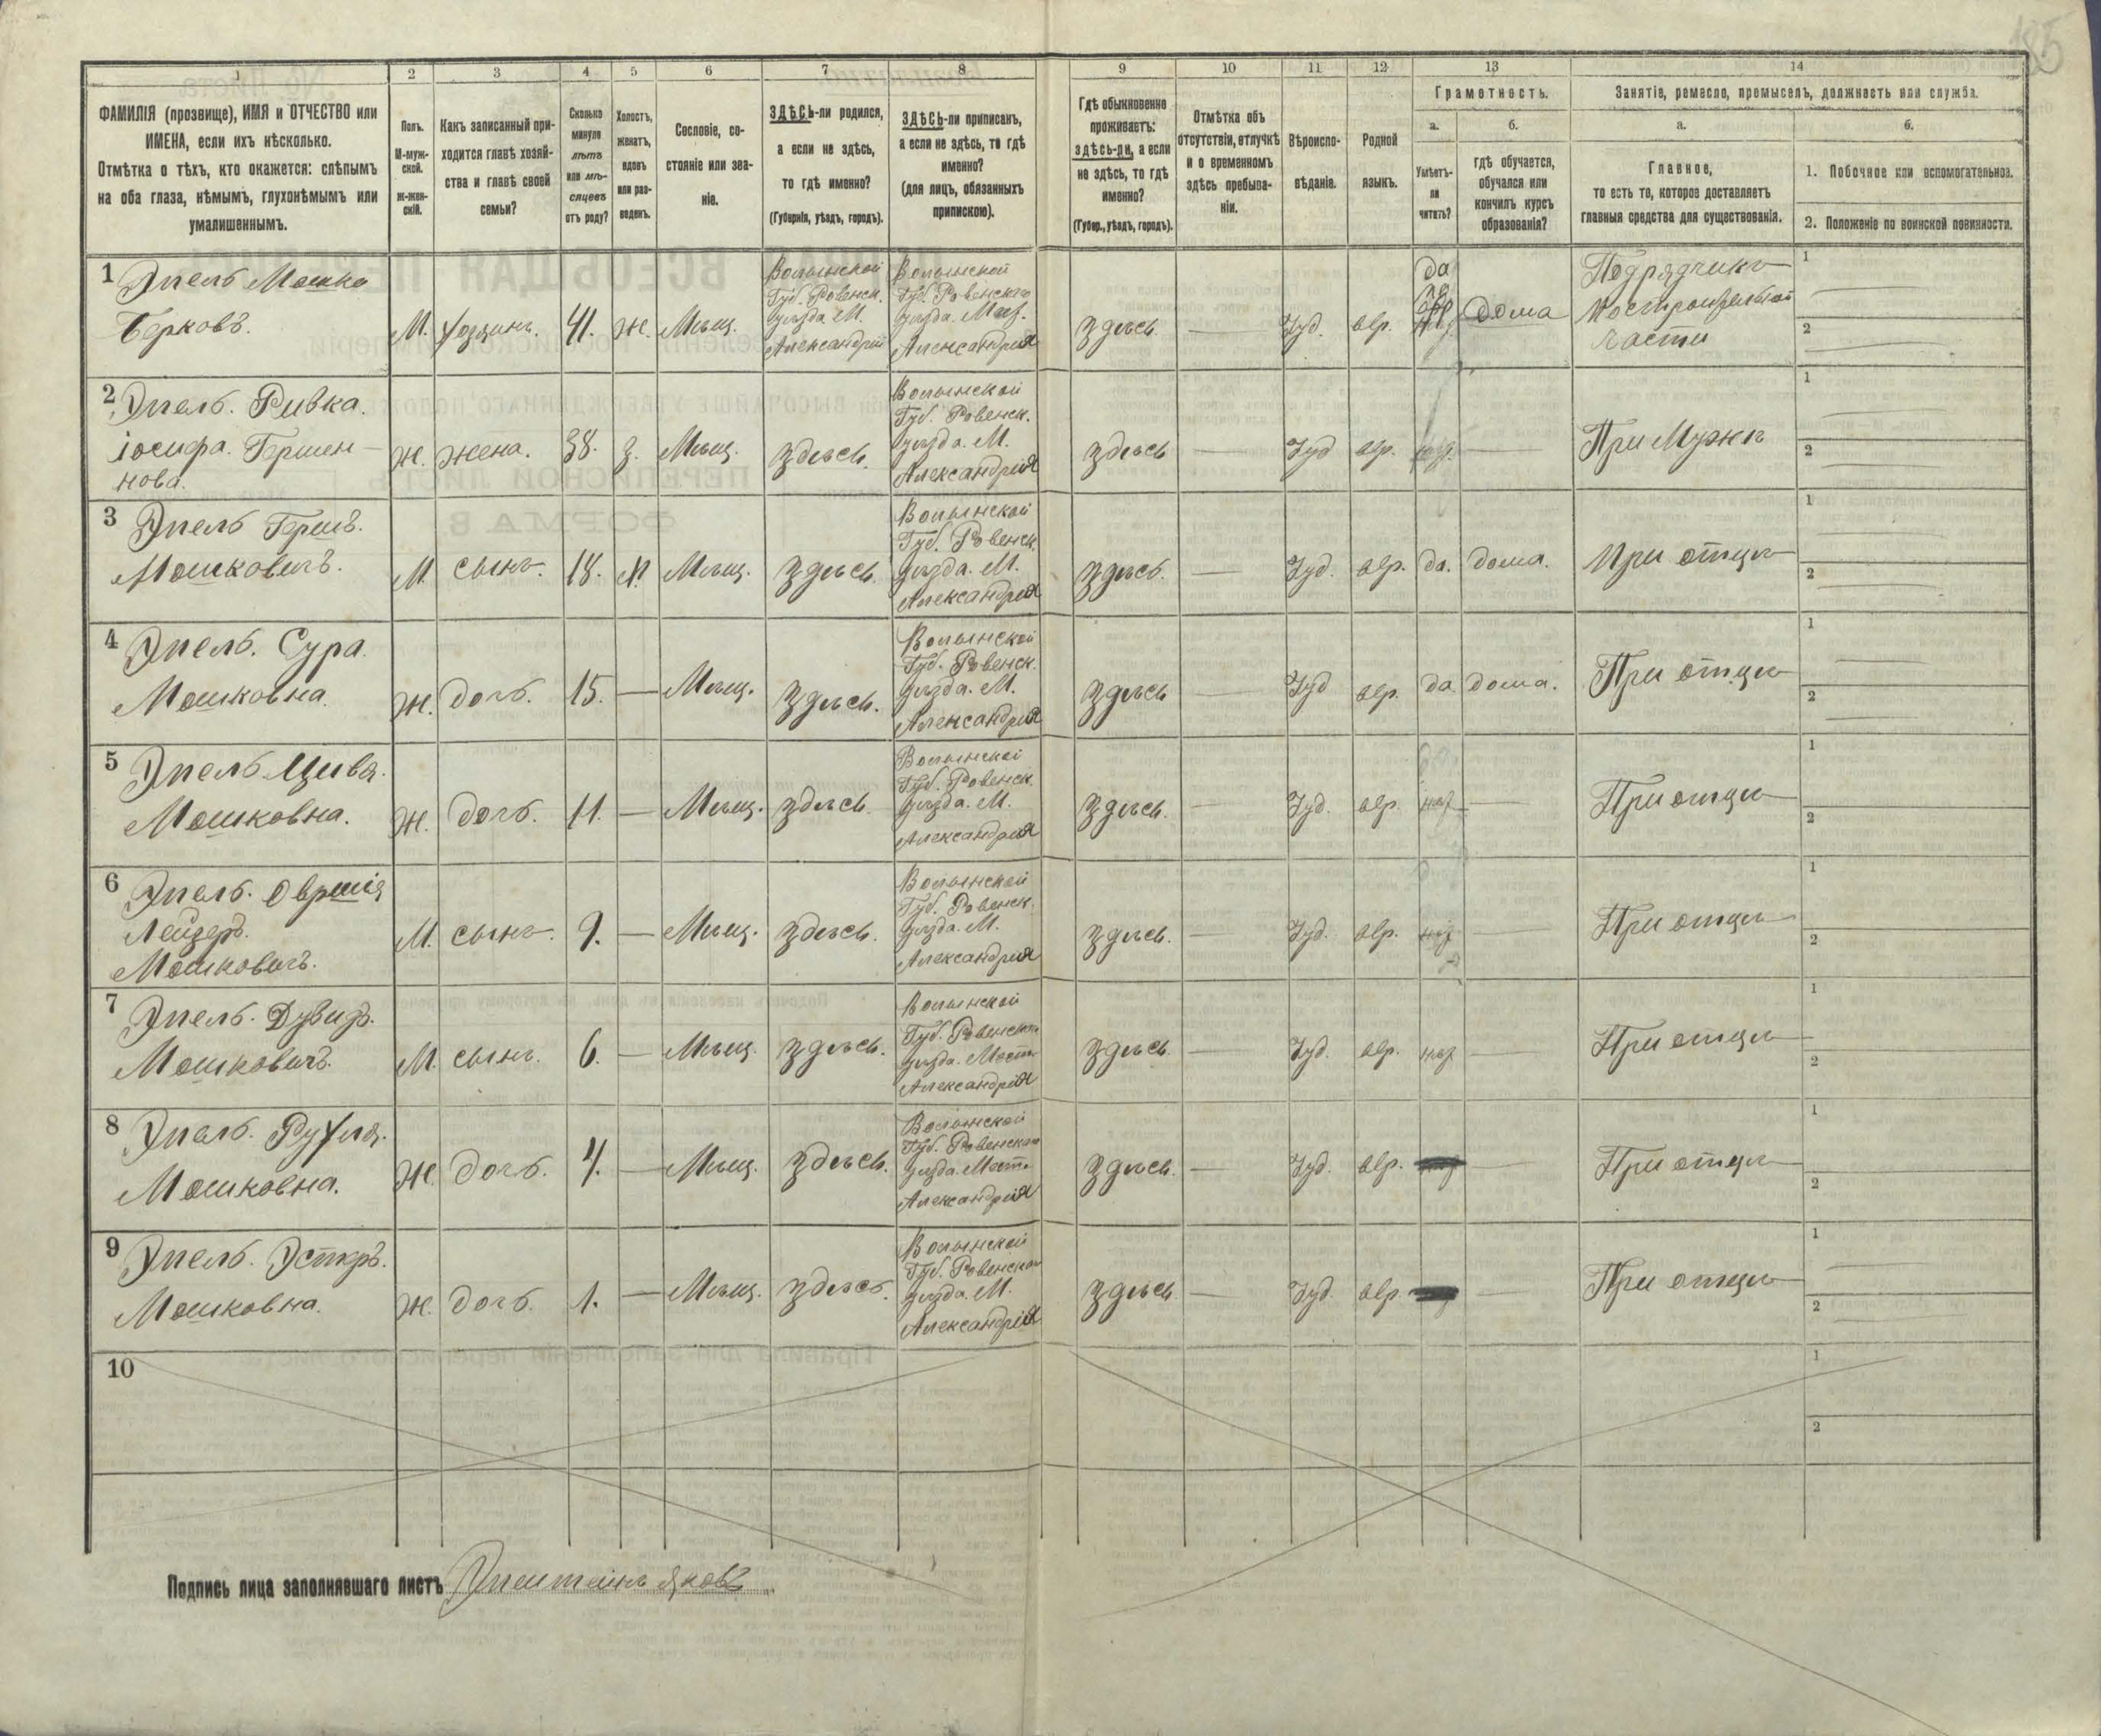 185
1 2 3 4 5 6 7 8 9 10 11 12 13 14
ФАМИЛІЯ (прозвище), ИМЯ и ОТЧЕСТВО или
ИМЕНА, если ихъ нѣсколько.
Отмѣтка о тѣхъ, кто окажется: слѣпымъ
на оба глаза, нѣмымъ, глухонѣмымъ или
умалишеннымъ.
Полъ.
М-муж-
ской.
ж-жен-
скій.
Какъ записанный при-
ходится главѣ хозяй-
ства и главѣ своей
семьи?
Сколько
минуло
лѣтъ
или мѣ-
сяцевъ
отъ роду?
Холостъ,
женатъ,
вдовъ
или раз-
веденъ.
Сословіе, со-
стояніе или зва-
ніе.
ЗДѢСЬ-ли родился,
а если не здѣсь,
то гдѣ именно?
(Губернія, уѣздъ, городъ).
ЗДѢСЬ-ли приписанъ,
а если не здѣсь, то гдѣ
именно?
(для лицъ, обязанныхъ
припискою).
Гдѣ обыкновенно
проживаетъ:
здѣсь-ли, а если
не здѣсь, то гдѣ
именно?
(Губер., уѣздъ, городъ).
Отмѣтка объ
отсутствіи, отлучкѣ
и о временномъ
здѣсь пребыва-
ніи.
Вѣроиспо-
вѣданіе.
Родной
языкъ.
Грамотность.
а.
Умѣетъ-
ли
читать?
б.
гдѣ обучается,
обучался или
кончилъ курсъ
образованія?
Занятіе, ремесло, промыселъ, должность или служба.
а.
Главное,
то есть то, которое доставляетъ
главныя средства для существованія.
б.
1. Побочное или вспомогательное.
2. Положеніе по воинской повинности.
1 Эпель Мошко
Берковъ.
М. Хозяинъ. 41. Ж. Мѣщ.
Волынской
Губ. Ровенск.
уѣзда. М.
Александрія
Волынской
Губ. Ровенскаго
уѣзда. Мѣс.
Александрія
здѣсь — Іуд. евр. да дома
Подрядчикъ
части
1
2
2 Эпель. Ривка.
Іосифа.
нова.
Ж. жена. 38. З. Мѣщ. здѣсь.
Волынской
Губ. Ровенск.
уѣзда. М.
Александрія
здѣсь — Іуд евр. нѣт. —
При Мужѣ
1
2
3 Эпель Гершъ.
Мошковичъ.
М. сынъ. 18. Х. Мѣщ. здѣсь.
Волынской
Губ. Ровенск.
уѣзда. М.
Александрія
здѣсь. — Іуд. евр. да. дома.
При отцѣ
1
2
4 Эпель. Сура.
Мошковна.
Ж. дочь. 15. — Мѣщ. здѣсь.
Волынской
Губ. Ровенск.
уѣзда. М.
Александрія
здѣсь — Іуд евр. да дома.
При отцѣ
1
2
5 Эпель Цивя.
Мошковна.
Ж. дочь. 11. — Мѣщ. здѣсь.
Волынской
Губ. Ровенск.
уѣзда. М.
Александрія
здѣсь. — Іуд. евр. нѣт —
При отцѣ
1
2
6 Эпель. Овршія
Лейзеръ.
Мошковичъ.
М. сынъ. 9. — Мѣщ. здѣсь.
Волынской
Губ. Ровенск.
уѣзда. М.
Александрія
здѣсь. — Іуд. евр. нѣт —
При отцѣ
1
2
7 Эпель. Дувидъ.
Мошковичъ.
М. сынъ. 6. — Мѣщ. здѣсь.
Волынской
Губ. Ровенскаго
уѣзда. Мѣст.
Александрія
здѣсь — Іуд. евр. нѣт —
При отцѣ
1
2
8 Эпель. Рухля.
Мошковна.
Ж. дочь. 4. — Мѣщ. здѣсь.
Волынской
Губ. Ровенскаго
уѣзда. Мѣст.
Александрія
здѣсь. — Іуд. евр. —
При отцѣ
1
2
9 Эпель. Эстеръ.
Мошковна.
Ж. дочь. 1. — Мѣщ. здѣсь.
Волынской
Губ. Ровенскаго
уѣзда. М.
Александрія
здѣсь — Іуд. евр. —
При отцѣ
1
2
10
1
2
Подпись лица заполнявшаго листъ Эпштейнъ Яковъ